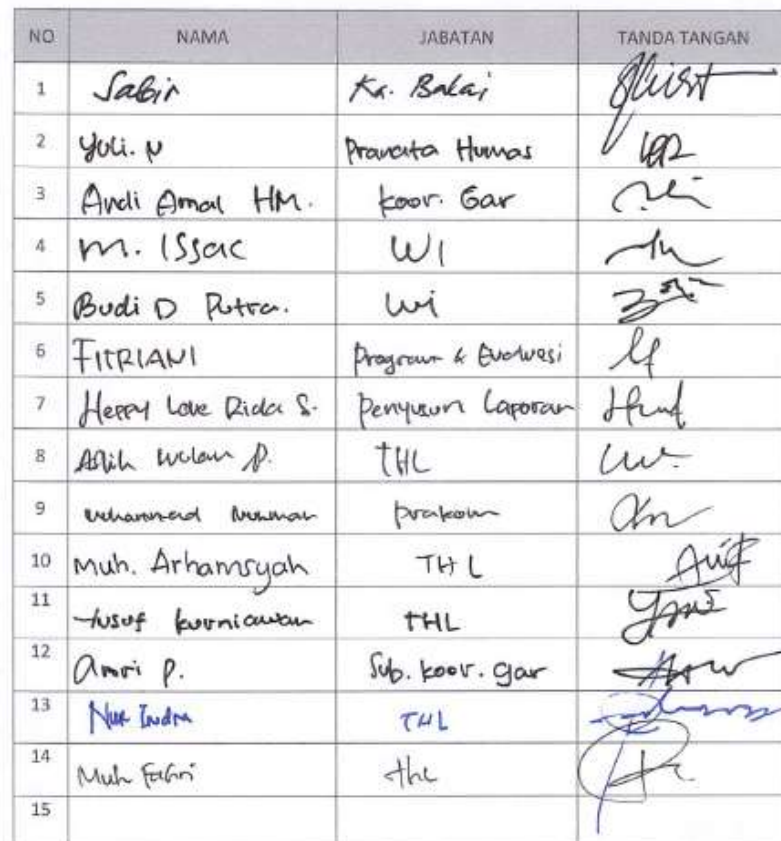 NO NAMA JABATAN TANDA TANGAN
1 Sabir Ka. Balai
2 Yuli. N Pranata Humas
3 Andi Amal HM. Koor. Gar
4 M. ISSac WI
5 Budi D Putra. Wi
6 FITRIANI Program & Evaluasi
7 Herry Love Rida S. Penyusun Laporan
8 Wulan P. THL
9 Muhammad prakom
10 Muh. Arhamsyah THL
11 Yusuf Kurniawan THL
12 Amri P. Sub. Koor. Gar
13 Nur Indra THL
14 Muh Fahri thL
15